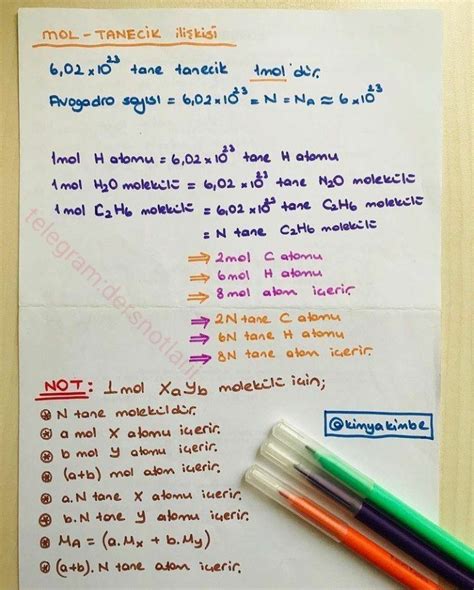 MOL - TANECİK ilişkisi
6,02x10²³ tane tanecik 1mol'dür.
Avogadro sayısı = 6,02x10²³ = N = NA ≈ 6x10²³
1mol H atomu = 6,02x10²³ tane H atomu
1mol H2O molekülü = 6,02x10²³ tane N2O molekülü
1mol C2H6 molekülü = 6,02x10²³ tane C2H6 molekülü
= N tane C2H6 molekülü
⇒ 2mol C atomu
⇒ 6mol H atomu
⇒ 8mol atom içerir.
⇒ 2N tane C atomu
⇒ 6N tane H atomu
⇒ 8N tane atom içerir.
NOT: 1mol XaYb molekülü için;
⊛ N tane moleküldür.
⊛ a mol X atomu içerir.
⊛ b mol y atomu içerir.
⊛ (a+b) mol atom içerir.
⊛ a.N tane X atomu içerir.
⊛ b.N tane y atomu içerir.
⊛ MA = (a.Mx + b.My)
⊛ (a+b).N tane atom içerir.
@kimyakimbe
telegram:dersnotlari